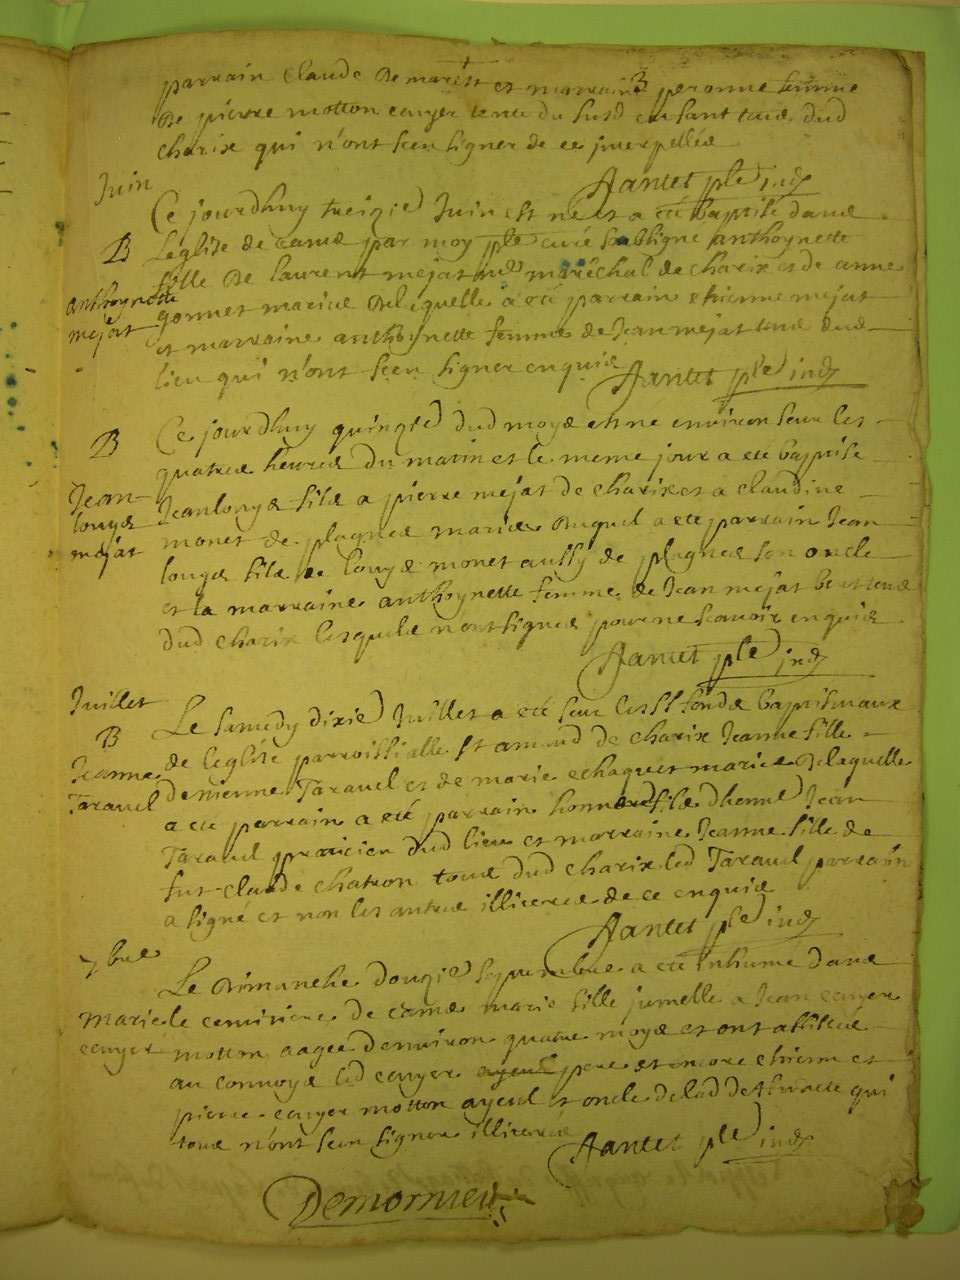 parrain claude Demarest et marraine peronne femme
De pierre motton cauyer tenu du susd enfant tous dud
charix qui n'ont sceu signer de ce jnterpellés
Jantet pbre ind
Juin
Ce jourdhuy treizie Juin est né et a eté baptisé dans
B
Leglise de camd par moy pbre curé soubsigné anthoynette
fille De laurent mejat md maréchal de charix et de anne
anthoynette
gonnet mariés De lequelle a eté parrain etienne mejat
mejat
et marraine anthoynette femme de Jean mejat tous dud
lieu qui n'ont sceu signer enquis
Jantet pbre ind
B
Ce jourdhuy quinzie dud moys est né environ seur les
quatres heures Du matin et le meme jour a eté baptisé
Jean
Jean louys fils a pierre mejat de charix et a claudine
louys
monet de plagnes mariés Duquel a eté parrain Jean
mejat
louys fils de louys monet aussy de plagnes son oncle
et la marraine anthoynette femme de Jean mejat tous
dud charix lesquels n'ont signés pour ne scavoir enquis
Jantet pbre ind
Juillet
Le samedy dixie Juillet a eté seur les ss fonds baptismaux
B
de leglise parroissialle St amand de charix Jeanne fille
Jeanne
Detienne Taravel et de marie echaquet mariés De laquelle
Taravel
a eté parrain a eté parrain honner fils dhonn Jean
Taravel praticien dud lieu et marraine Jeanne fille de
fut claude chatron tous dud charix led Taravel parrain
a signé et non les autres illiteres de ce enquis
Jantet pbre ind
7bre
Le Dimanche douzie septembre a eté inhumé dans
marie
le cemitiere de camd marie fille jumelle a Jean cauyer
cauyer
motton aagée Denviron quatre moys et ont assistés
au convoys led cauyer pere et encore etienne et
pierre cauyer motton ayeul et oncle de lad defuncte qui
tous n'ont sceu signer illiteres
Jantet pbre ind
Demornieu